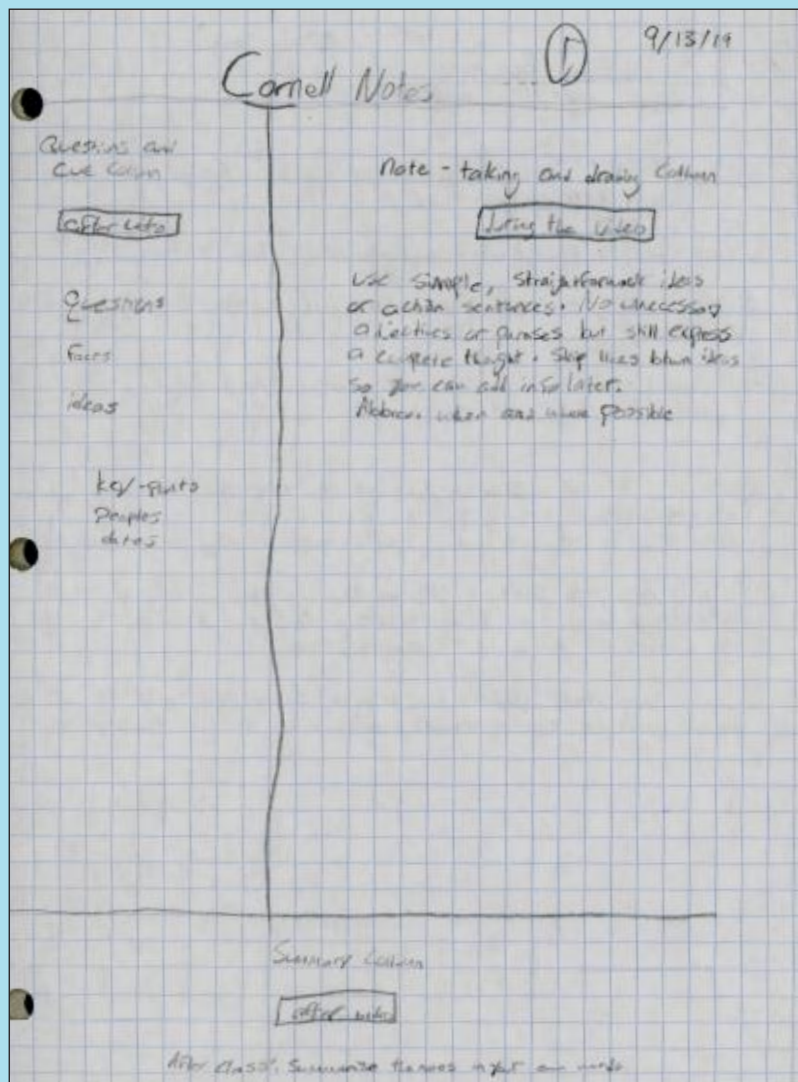 9/13/19
Cornell Notes
Questions and
Cue Column
after video
Questions
Facts
ideas
key-points
Peoples
dates
note-taking and drawing Column
during the video
Use simple, straightforward ideas
or action sentences. No unnecessary
adjectives or phrases but still express
a complete thought. Skip lines btwn ideas
so you can add info later.
Abbrev. when and where possible
Summary Column
after video
After class, Summarize the notes in your own words